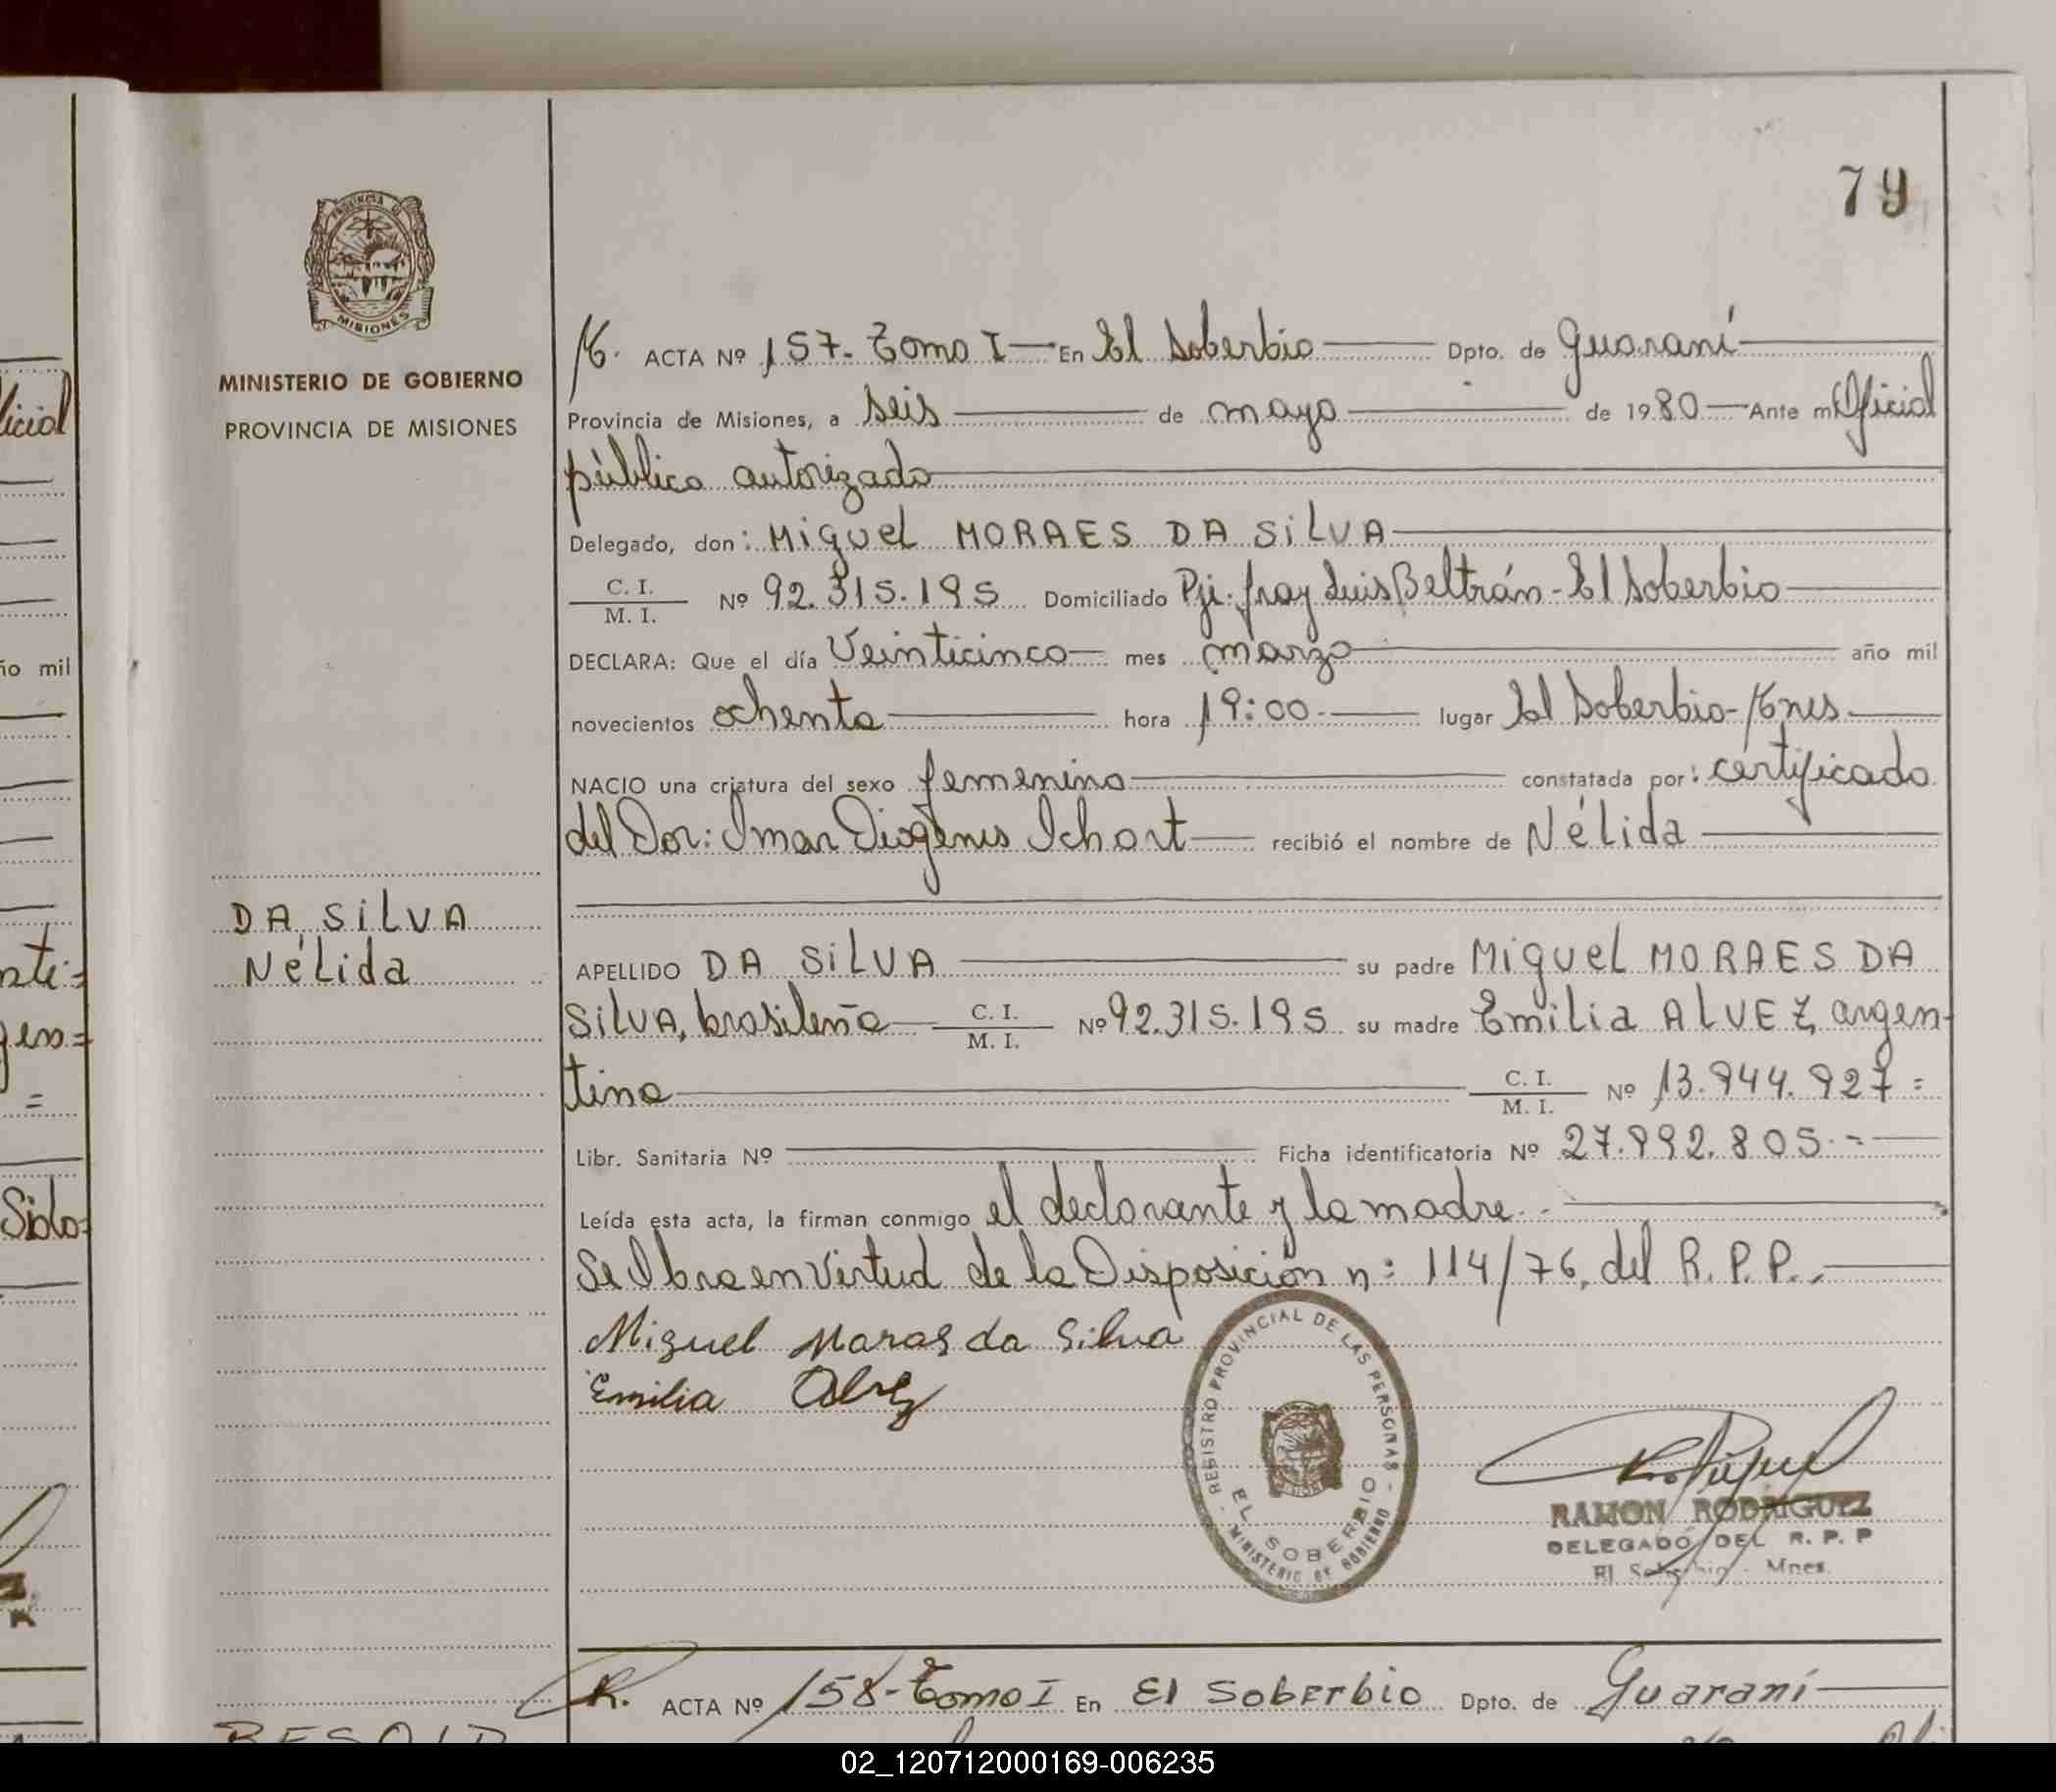 79
PROVINCIA D
MISIONES
MINISTERIO DE GOBIERNO
PROVINCIA DE MISIONES
DA SiLVA
Nélida
ACTA Nº 157- Tomo I — En El Soberbio — Dpto. de Guaraní
Provincia de Misiones, a seis de mayo de 1980 — Ante mi Oficial
público autorizado
Delegado, don: Miguel MORAES DA SiLVA
C. I.
M. I.
Nº 92.315.195 Domiciliado Pji. fray Luis Beltrán - El Soberbio
DECLARA: Que el día Veinticinco mes marzo año mil
novecientos ochenta hora 19:00 lugar El Soberbio-
NACIO una criatura del sexo femenino constatada por: certificado
del Dor: Imar Diógenes Ichart — recibió el nombre de Nélida
APELLIDO DA SiLVA su padre Miguel MORAES DA
SiLVA, brasileño C. I. M. I. Nº 92.315.195 su madre Emilia ALVEZ, argen-
tina C. I. M. I. Nº 13.944.927 =
Libr. Sanitaria Nº Ficha identificatoria Nº 27.992.805.-
Leída esta acta, la firman conmigo el declarante y la madre.-
Se labra en Virtud de la Disposición n: 114/76, del R. P. P..
Miguel Maras da Silva
Emilia Alvez
REGISTRO PROVINCIAL DE LAS PERSONAS
EL SOBERBIO
MINISTERIO DE GOBIERNO
RAMON RODRIGUEZ
DELEGADO DEL R. P. P
El Soberbio - Mnes.
R. ACTA Nº 158- Tomo I En El Soberbio Dpto. de Guaraní
licial
ño mil
nti=
gen=
=
Sido=
02_120712000169-006235